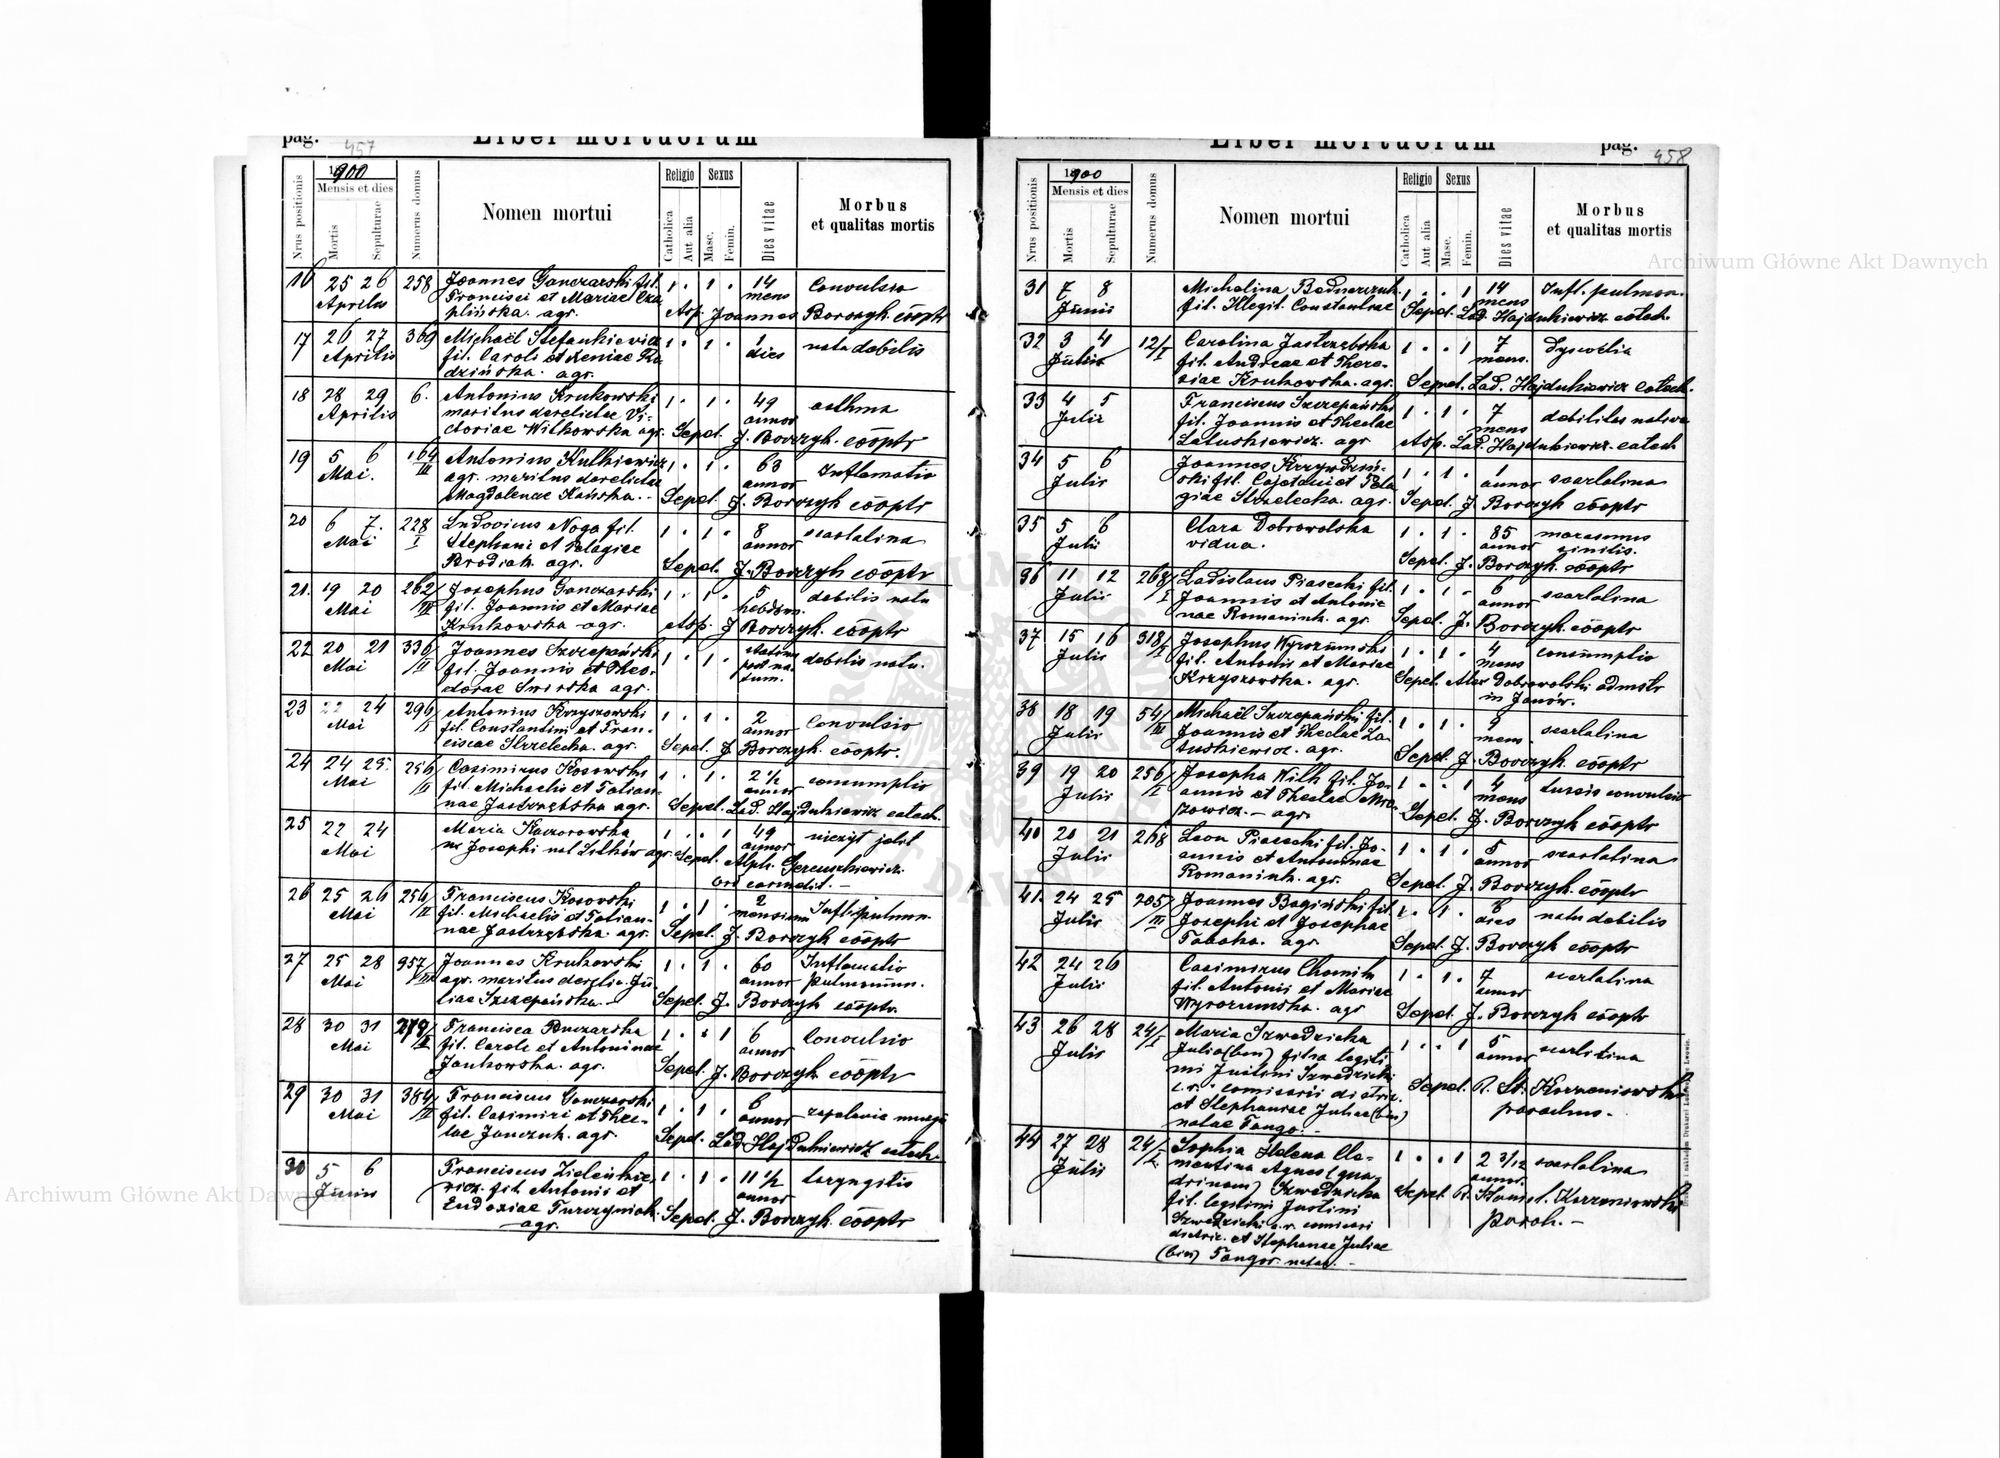 pag. 457
Liber mortuorum
1900
Nrus positionis
Mensis et dies
Mortis
Sepulturae
Numerus domus
Nomen mortui
Religio
Catholica
Aut alia
Sexus
Masc.
Femin.
Dies vitae
Morbus
et qualitas mortis
16 25 26 258 Joannes Gonczarski fil. 1 . 1 . 14 Convulsio
Aprilis Francisci et Mariae Cza mens
plińska. agr. Asp. Joannes Borczyk. cōoptr
17 26 27 369 Michaël Stefankiewicz 1 . 1 . 1 natu debilis
Aprilis fil. Caroli et Xeniae Ra dies
dzińska. agr.
18 28 29 6. Antonius Krukowski 1 . 1 . 49 asthma
Aprilis maritus derelictae Vi- annor
ctoriae Witkowska agr. Sepel. J. Borczyk. cōoptr
19 5 6 164/III Antonius Kulkiewicz 1 . 1 . 63 Inflamatio
Mai. agr. maritus derelictae annor
Magdalenae Kańska. - Sepel. J. Borczyk cōoptr
20 6 7. 228/I Ludovicus Noga fil. 1 . 1 . 8 scarlatina
Mai Stephani et Pelagiae annor
Brodiak. agr. Sepel. J. Borczyk cōoptr
21. 19 20 262/II Josephus Gonczarski 1 . 1 . 5 debilis natu
Mai fil. Joannis et Mariae hebdom.
Krukowska agr. Asp. J Borczyk. cōoptr
22 20 21 336/II Joannes Szczepański 1 . 1 . statim debilis natu.
Mai fil. Joannis et Theo- post na-
dorae Swirska agr. tum.
23 22 24 296/I Antonius Krzyszowski 1 . 1 . 2 Convulsio
Mai fil. Constantini et Fran- annor
ciscae Strzelecka. agr. Sepel. J Borczyk cōoptr.
24 24 25. 256/II Casimirus Kosowski 1 . 1 . 2 1/2 consumptio
Mai fil. Michaelis et Tatian- annor
nae Jastrzębska agr. Sepel. Lad. Hajdukiewicz catech.
25 22 24 Maria Kaczorowska 1 . . 1 49 nieżyt jelit
Mai ux Josephi nat agr. Sepel. annor
Alph.
Ord carmelit. -
26 25 26 256/II Franciscus Kosovski 1 . 1 . 2 Infl. pulmon.
Mai fil. Michaelis et Tatian- mensium
nae Jastrzębska. agr. Sepel. J. Borczyk cōoptr
27 25 28 957/III Joannes Kruhovski 1 . 1 . 60 Inflamatio
Mai agr. maritus derelic. Ju annor pulmonum.
liae Szczepańska. - Sepel. J. Borczyk cōoptr.
28 30 31 279/II Francisca Bonczarska 1 . . 1 6 Convulsio
Mai fil. Caroli et Antoninae annor
Jankowska. agr. Sepel. J. Borczyk cōoptr
29 30 31 384/II Franciscus Gonczarski 1 . 1 . 6 zapalenie mózgu
Mai fil. Casimiri et Thec- annor
lae Janczuk. agr. Sepel. Lad. Hajdukiewicz catech.
30 5 6 Franciscus Zielenkie- 1 . 1 . 11 1/2 laryngitis
Junii wicz. fil. Antonii et annor
Eudoxiae Turczyniak. Sepel. J. Borczyk. cōoptr
agr.
Liber mortuorum
pag. 458
1900
Nrus positionis
Mensis et dies
Mortis
Sepulturae
Numerus domus
Nomen mortui
Religio
Catholica
Aut alia
Sexus
Masc.
Femin.
Dies vitae
Morbus
et qualitas mortis
31 7 8 Michalina Bednarczuk 1 . . 1 14 Infl. pulmon.
Junii fil. Illegit. Constantiae mens
Sepel. Lad. Hajdukiewicz catech.
32 3 4 12/I Carolina Jastrzębska 1 . . 1 7
Julii fil. Andreae et There- mens.
siae Krukowska. agr. Sepel. Lad. Hajdukiewicz catech.
33 4 5 Franciscus Szczepański 1 . 1 . 7 debilitas nativa
Julii fil. Joannis et Theclae mens
Latuskiewicz. agr Asp. Lad. Hajdukiewicz. catech
34 5 6 Joannes Krzywdziń- 1 . 1 . 1 scarlatina
Julii ski fil. Cajetani et Pela annor
giae Strzelecka. agr. Sepel. J. Borczyk cōoptr
35 5 6 Clara Dobrowolska 1 . 1 . 85 marasmus
Julii vidua. annor sinilis.
Sepel. J. Borczyk. cōoptr
36 11 12 268/I Ladislaus Piasecki fil. 1 . 1 . 6 scarlatina
Julii Joannis et Antoni- annor
nae Romaniuk. agr. Sepel. J. Borczyk. cōoptr
37 15 16 318/I Josephus Wyrozumski 1 . 1 . 4 consumptio
Julii fil. Antonii et Mariae mens
Krzyszowska. agr. Sepel. Alex Dobrowolski admstr
in Janów.
38 18 19 54/III Michaël Szczepański fil. 1 . 1 . 9 scarlatina
Julii Joannis et Theclae La- mens.
tuskiewicz. agr. Sepel. J. Borczyk cōoptr
39 19 20 256/I Josepha Wilk fil. Jo- 1 . . 1 4 tussis convulsio
Julii annis et Theclae Mro- mens
zowicz. - agr. Sepel. J. Borczyk cōoptr
40 20 21 268 Leon Piasecki fil. Jo- 1 . 1 . 5 scarlatina
Julii annis et Antoninae annor
Romaniuk. agr. Sepel. J. Borczyk. cōoptr
41. 24 25 205/III Joannes Bagiński fil. 1 . 1 . 6 natu debilis
Julii Josephi et Josephae dies
Tabaka. agr Sepel. J. Borczyk cōoptr
42 24 26 Casimirus Chomik 1 . 1 . 7 scarlatina
Julii fil. Antonii et Mariae annor
Wyrozumska. agr Sepel. J. Borczyk cōoptr
43 26 28 24/I Maria Szwedzicka 1 . . 1 5 scarlitina
Julii Julia (bin) filia legiti annor
mi Justini Szwedzicki Sepel. R. St. Korzeniowski
c. r. comisarii distric. parochus. -
et Stephaniae Juliae (bin)
natae Tango. -
44 27 28 24/I Sophia Helena Cle- 1 . . 1 2 3/12 scarlatina
Julii mentina Agnes (qua annor.
drinom) Szwedzicka Sepel. R. Stanisl. Korzeniowski
fil. legitimi Justini paroh. -
Szwedzicki c. r. comisari
distric. et Stephanae Juliae
(bin) Tangor. natae. -
Archiwum Główne Akt Dawnych
Archiwum Główne Akt Dawnych